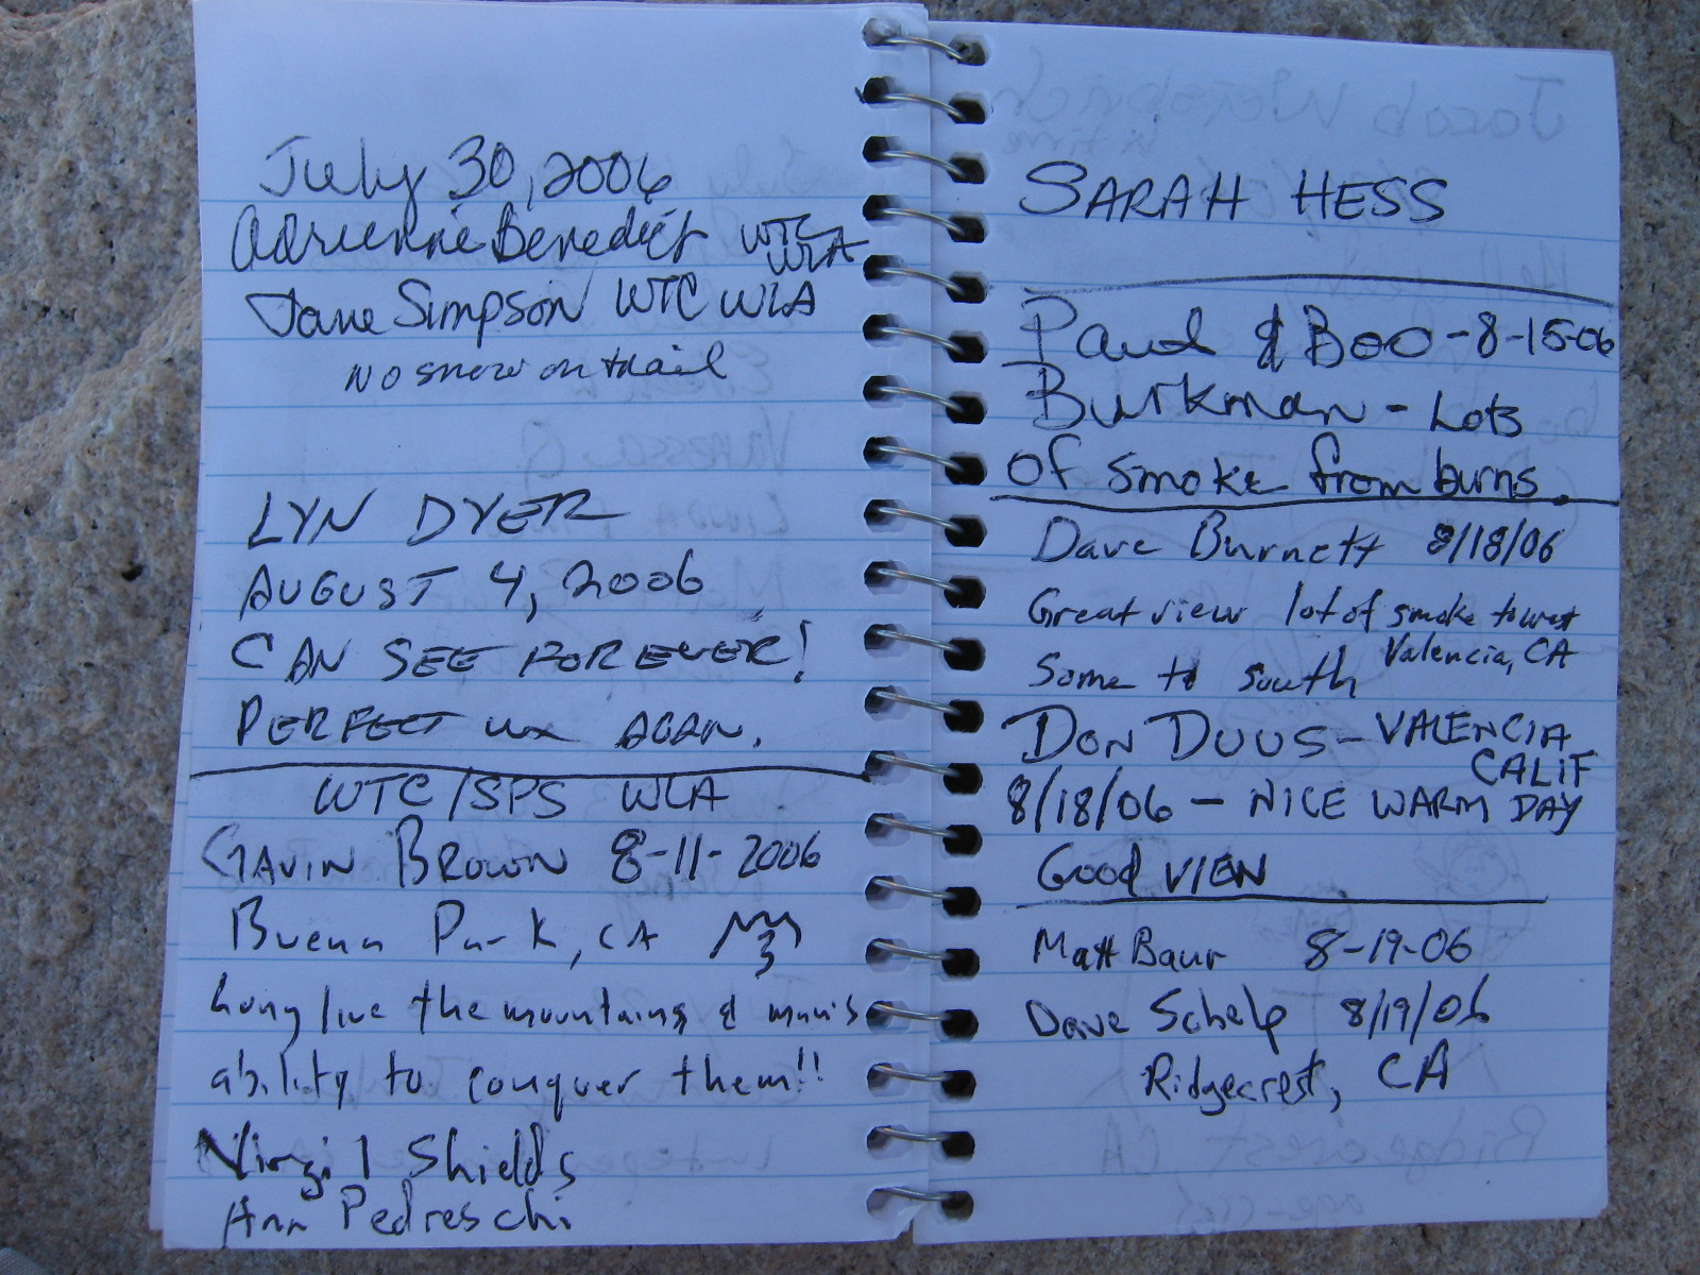 July 30, 2006
Adrienne Benedict WTC
WLA
Jane Simpson WTC WLA
No snow on trail
LYN DYER
AUGUST 4, 2006
CAN SEE FOREVER!
PERFECT wx AGAIN.
WTC/SPS WLA
GAVIN BROWN 8-11-2006
Buena Park, CA
Long live the mountains & man's
ability to conquer them!!
Virgil Shields
Ann Pedreschi
SARAH HESS
Paul & Boo - 8-15-06
Burkman - Lots
of smoke from burns.
Dave Burnett 8/18/06
Great view lot of smoke to west
Some to south Valencia, CA
DON DUUS - VALENCIA
CALIF
8/18/06 - NICE WARM DAY
Good VIEW
Matt Baur 8-19-06
Dave Schelp 8/19/06
Ridgecrest, CA